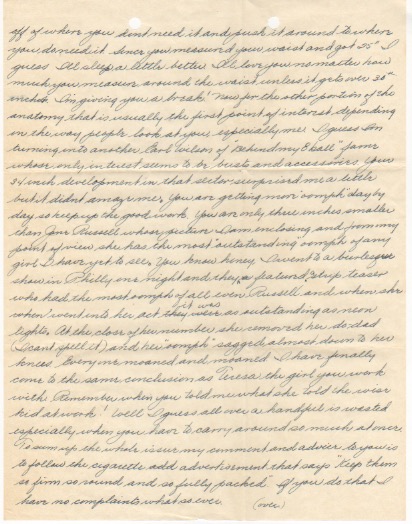 off of where you dont need it and push it around to where
you do need it. Since you measured your waist and got 25" I
guess I'll sleep a little better. I'll love you no matter how
much you measure around the waist unless it gets over 30"
inches. I'm giving you a break! Now for the other portion of the
anatomy that is usually the first point of interest depending
in the way people look at you, especially me. I guess Im
turning into another Earl Wilson of "Behind my 8 ball" fame
whose only interest seems to be busts and accessories. Your
34 inch development in that sector surprised me a little
but it didnt amaze me. You are getting more "oomph" day by
day so keep up the good work. You are only three inches smaller
than Jane Russell whose picture I am inclosing and from my
point of view, she has the most "outstanding oomph of any
girl I have yet to see. You know honey, I went to a burlesque
show in Philly one night and they featured a strip teaser
who had the most oomph of all even Russell and when she
went into her act it was as outstanding as neon
lights. At the close of her number she removed her do-dad
(I cant spell it) and her "oomph" sagged almost down to her
knees. Everyone moaned and moaned. I have finally
come to the same conclusion as Teresa the girl you work
with. Remember when you told me what she told the wise
kid at work! Well I guess all over a handful is wasted
especially when you have to carry around so much at once.
To sum up the whole issue my comment and advice to you is
to follow the cigarette add advertisement that says "keep them
so firm, so round and so fully packed" If you do that I
have no complaints what so ever.
(over)